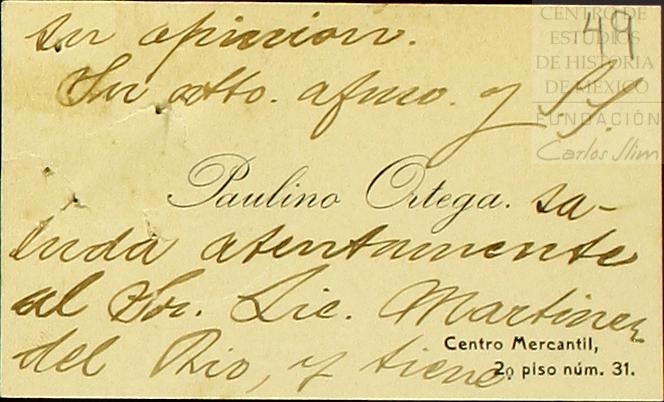 su opinion.
Su atto. afmo. y S.S.
49
CENTRO DE
ESTUDIOS
DE HISTORIA
DE MÉXICO
FUNDACIÓN
Carlos Slim
Paulino Ortega. sa-
luda atentamente
al Sor. Lic. Martinez
del Rio, y tiene
Centro Mercantil,
2o piso núm. 31.